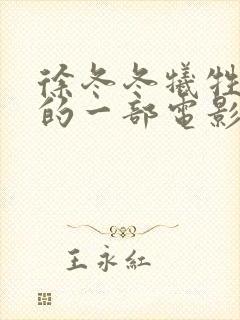 徐冬冬犧牲
的一部電影
王永紅